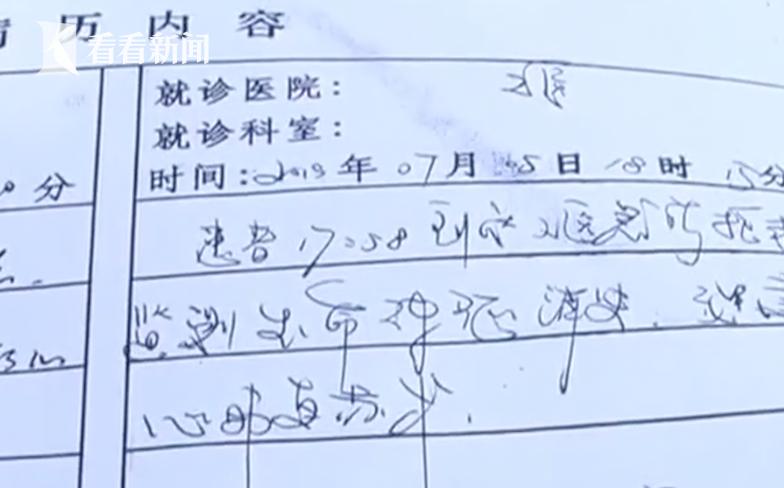 情历内容
看看新闻
就诊医院：
就诊科室：
时间：2019年07月05日18时15分
分
患者17:58到达医急诊抢
监测生命体征消失.
心肺复苏术.